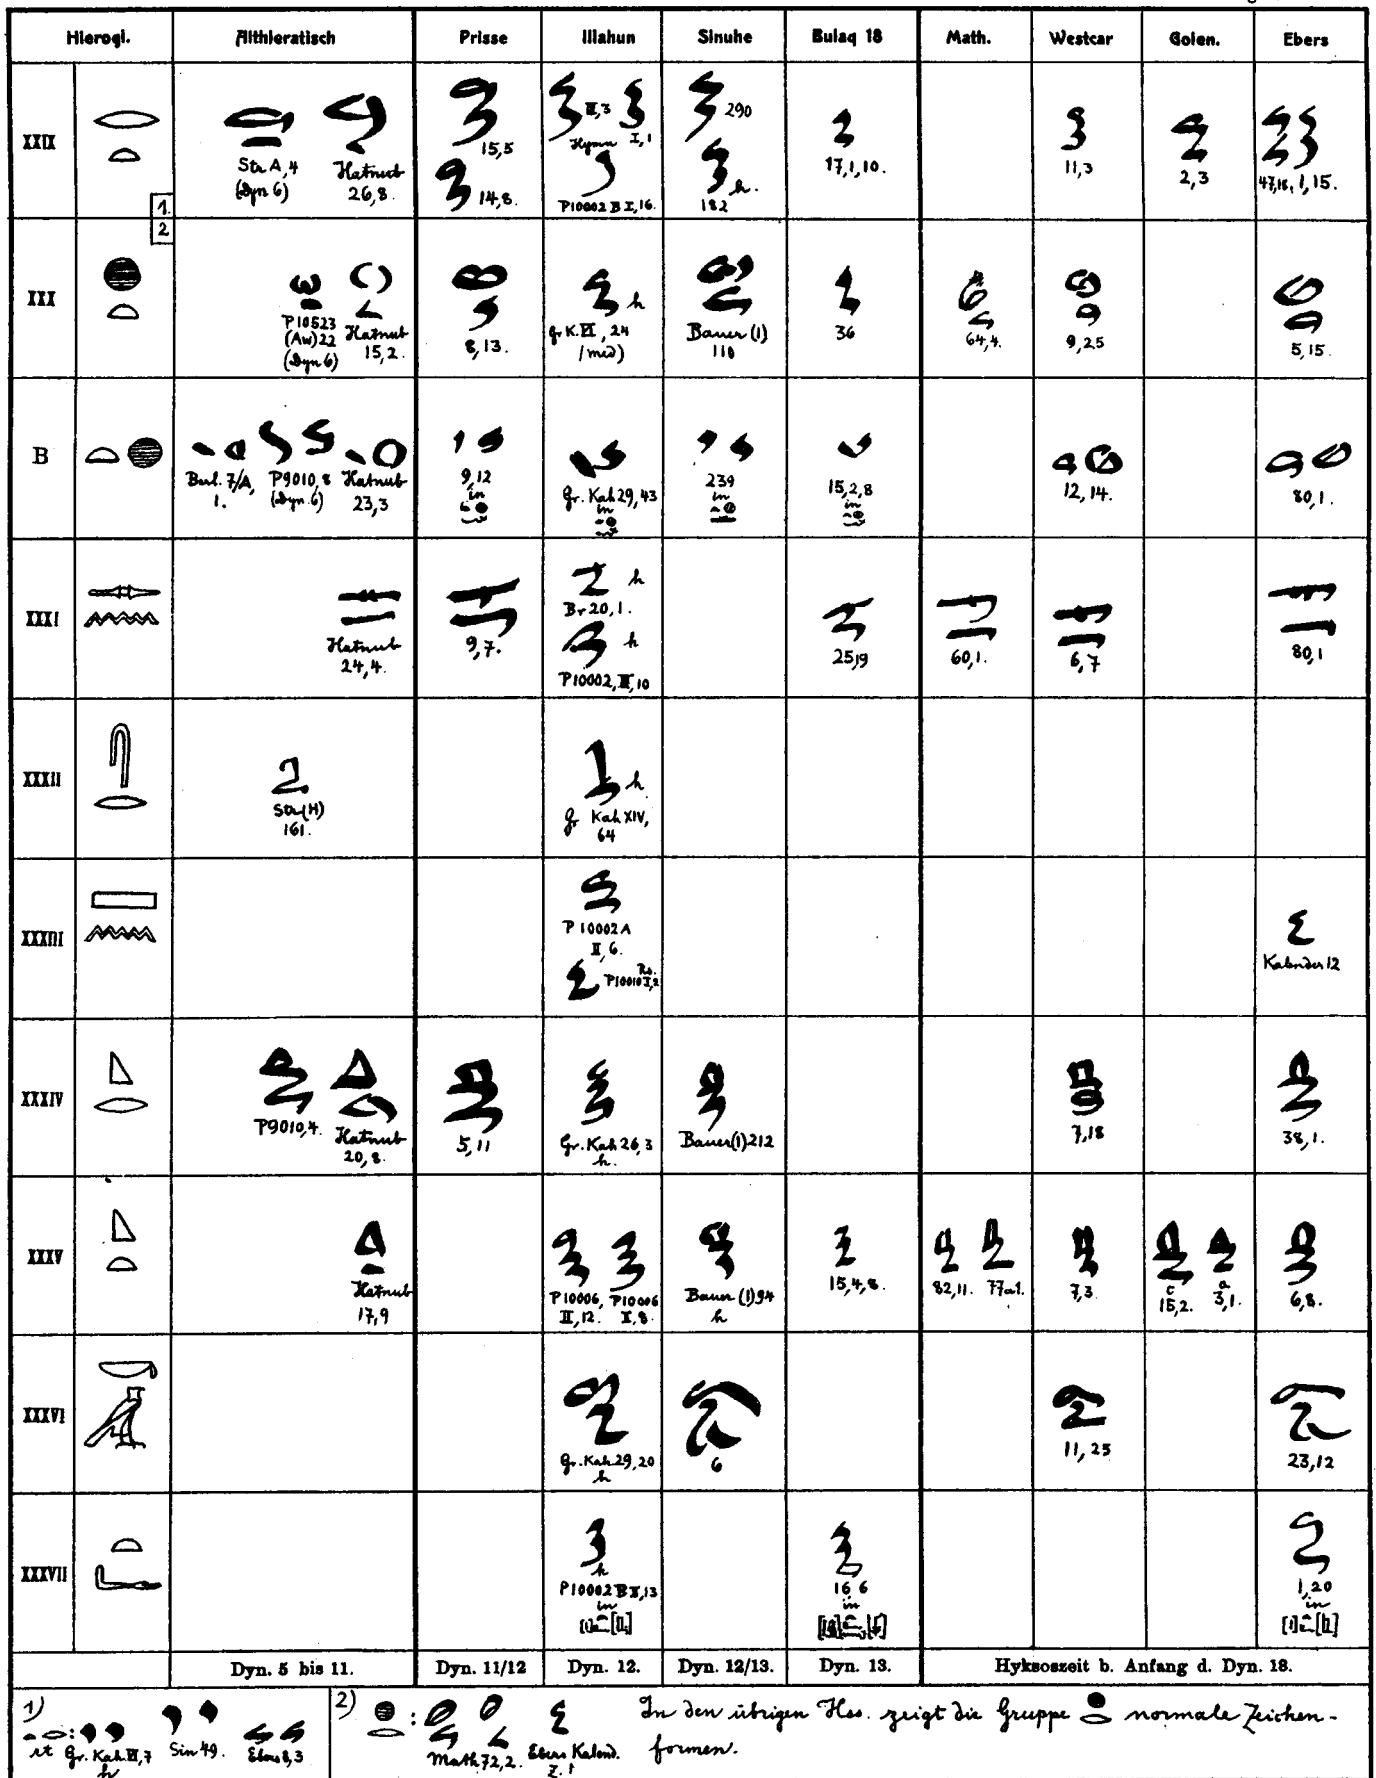 Hierogl. Althieratisch Prisse Illahun Sinuhe Bulaq 18 Math. Westcar Golen. Ebers
XXIX
Str A, 4
(Dyn 6)
Hatnub
26,8.
15,5
14,8.
III,3
I,1
Hymn
P10002 B I,16.
290
h.
182
17,1,10.
11,3
2,3
47,18, 1,15.
1.
2
XXX
P10523
(Aw)22
(Dyn 6)
Hatnub
15,2.
8,13.
h
gr K. VI, 24
(mid)
Bauer (1)
110
36
64,4.
9,25
5,15.
B
Berl. 7/A,
1.
P9010,8
(Dyn. 6)
Hatnub
23,3
9,12
in
Gr. Kah 29,43
in
239
in
15,2,8
in
12, 14.
80,1.
XXXI
Hatnub
24,4.
9,7.
h
Br 20,1.
h
P10002, III,10
25,19
60,1.
6,7
80,1
XXXII
Str(H)
161.
h
gr Kah XIV,
64
XXXIII
P 10002 A
II, 6.
Rs.
P10010 I,2
Kalender 12
XXXIV
P9010,4.
Hatnub
20,8.
5,11
Gr. Kah 26,3
h.
Bauer(1) 212
7,18
38,1.
XXXV
Hatnub
17,9
P10006,
II,12.
P10006
I,8.
Bauer (1) 94
h
15,4,8.
82,11. 77a1.
7,3.
c
15,2.
a
3,1.
6,8.
XXXVI
Gr. Kah 29,20
h
6
11,25
23,12
XXXVII
h
P10002 B I,13
in
16 6
in
1,20
in
Dyn. 5 bis 11. Dyn. 11/12 Dyn. 12. Dyn. 12/13. Dyn. 13. Hyksoszeit b. Anfang d. Dyn. 18.
1)
: Gr. Kah III,7
h
Sin 49.
Ebers 8,3
2)
:
Math 72,2. Ebers Kalend.
Z. 1
In den übrigen Hss. zeigt die Gruppe normale Zeichen-
formen.